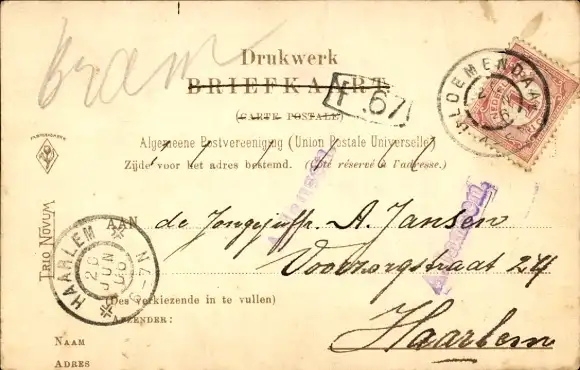 Bram
Drukwerk
BRIEFKAART
(CARTE POSTALE)
F.67
Algemeene Postvereeniging (Union Postale Universelle)
Zijde voor het adres bestemd. (Côté réservé à l'adresse.)
TRIO NOVUM
AAN de Jongejuffr. A. Jansen
Voorzorgstraat 24
Haarlem
(Des verkiezende in te vullen)
AFZENDER:
NAAM
ADRES
HAARLEM
JUN
6-7N
A. Jansen